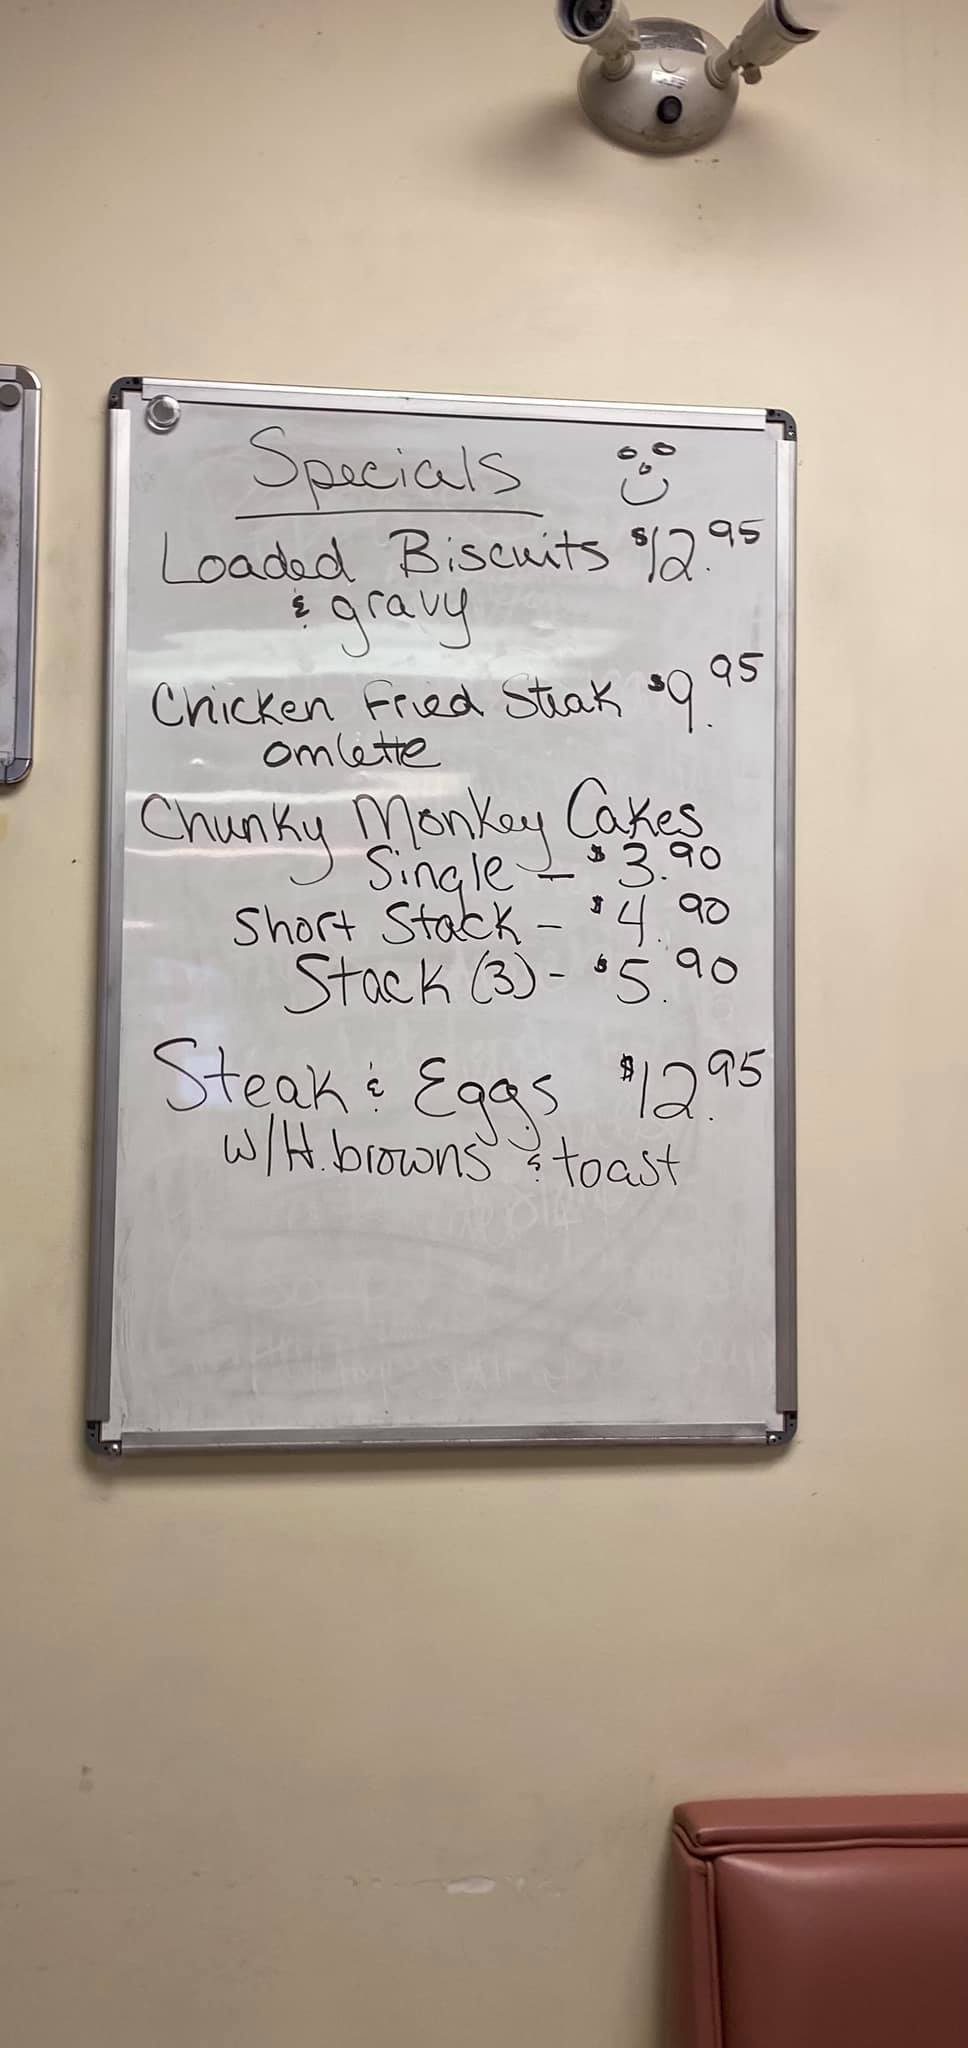 Specials
Loaded Biscuits $12.95
& gravy
Chicken Fried Steak $9.95
omlette
Chunky Monkey Cakes
Single - $3.90
Short Stack - $4.90
Stack (3) - $5.90
Steak & Eggs $12.95
w/H.browns & toast